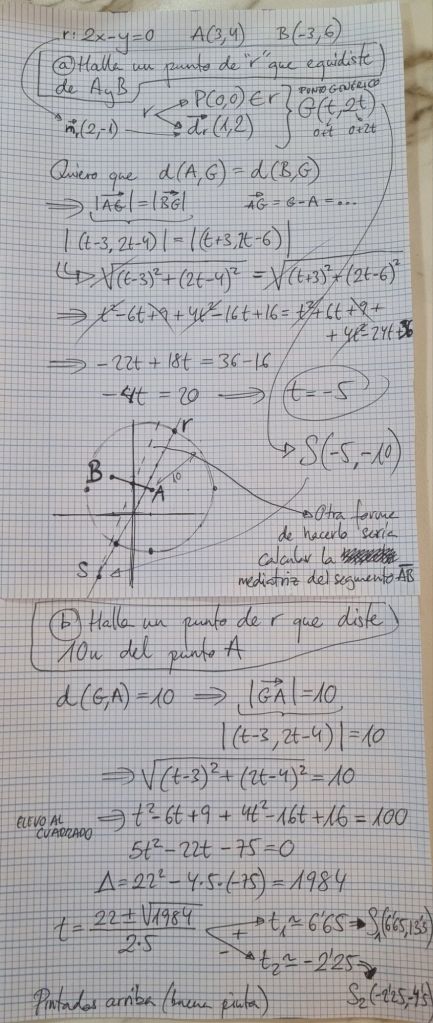 r: 2x-y=0 A(3,4) B(-3,6)
ⓐ Halla un punto de "r" que equidiste
de A y B
r P(0,0) ∈ r PUNTO GENÉRICO
n⃗r(2,-1) d⃗r(1,2) G(t, 2t)
0+t 0+2t
Quiero que d(A,G) = d(B,G)
⇒ |A⃗G| = |B⃗G| A⃗G = G-A = ...
|(t-3, 2t-4)| = |(t+3, 2t-6)|
↳ √(t-3)²+(2t-4)² = √(t+3)²+(2t-6)²
⇒ t²-6t+9+4t²-16t+16 = t²+6t+9+
+4t²-24t+36
⇒ -22t+18t = 36-16
-4t = 20 → t=-5
S(-5,-10)
r
B
A
10
S
Otra forma
de hacerlo sería
calcular la
mediatriz del segmento AB
ⓑ Halla un punto de r que diste
10u del punto A
d(G,A)=10 ⇒ |G⃗A|=10
|(t-3, 2t-4)|=10
⇒ √(t-3)²+(2t-4)² = 10
ELEVO AL CUADRADO ⇒ t²-6t+9+4t²-16t+16 = 100
5t²-22t-75=0
Δ=22²-4·5·(-75) = 1984
t = 22±√1984 / 2·5 + t₁≈6'65 → S₁(6'65,13'3)
- t₂≈-2'25
S₂(-2'25,-4'5)
Pintados arriba (buena pinta)